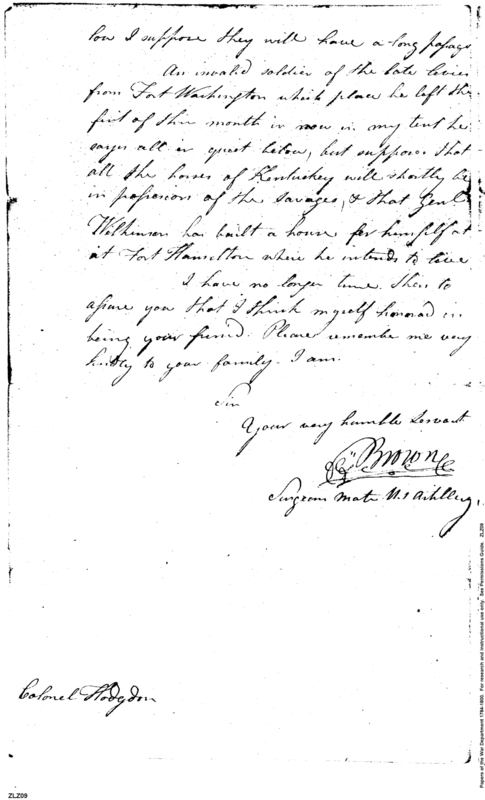 low I suppose they will have a long passage
An invalid soldier of the late levies
from Fort Washington which place he left the
first of this month is now in my tent he
says all is quiet below, but supposes that
all the horses of Kentuckey will shortly be
in possession of the Savages, & that Genl
Wilkinson has built a house for himself at
at Fort Hamilton where he intends to live
I have no longer time than to
assure you that I think myself honored in
being your friend. Please remember me very
kindly to your family. I am.
Sir
Your very humble Servant
Brown
Surgeons mate U.S Artillery,
Colonel Hodgdon
ZLZ09
Papers of the War Department 1784-1800. For research and instructional use only. See Permissions Guide. ZLZ09